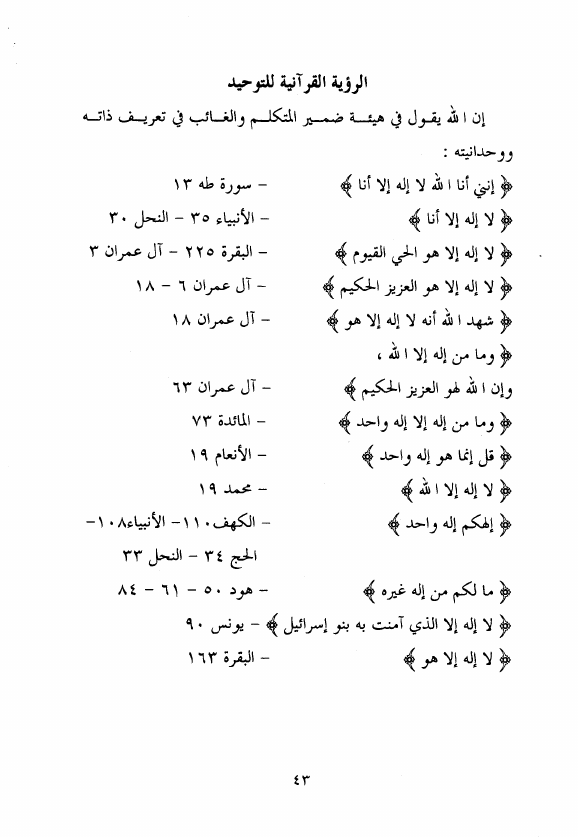 الرؤية القرآنية للتوحيد
إن الله يقول في هيئة ضمير المتكلم والغائب في تعريف ذاته
ووحدانيته :
﴿ إنني أنا الله لا إله إلا أنا ﴾ – سورة طه ١٣
﴿ لا إله إلا أنا ﴾ – الأنبياء ٣٥ – النحل ٣٠
﴿ لا إله إلا هو الحي القيوم ﴾ – البقرة ٢٢٥ – آل عمران ٣
﴿ لا إله إلا هو العزيز الحكيم ﴾ – آل عمران ٦ – ١٨
﴿ شهد الله أنه لا إله إلا هو ﴾ – آل عمران ١٨
﴿ وما من إله إلا الله ،
وإن الله لهو العزيز الحكيم ﴾ – آل عمران ٦٣
﴿ وما من إله إلا إله واحد ﴾ – المائدة ٧٣
﴿ قل إنما هو إله واحد ﴾ – الأنعام ١٩
﴿ لا إله إلا الله ﴾ – محمد ١٩
﴿ إلهكم إله واحد ﴾ – الكهف١١٠– الأنبياء١٠٨–
الحج ٣٤ – النحل ٣٣
﴿ ما لكم من إله غيره ﴾ – هود ٥٠ – ٦١ – ٨٤
﴿ لا إله إلا الذي آمنت به بنو إسرائيل ﴾ – يونس ٩٠
﴿ لا إله إلا هو ﴾ – البقرة ١٦٣
٤٣